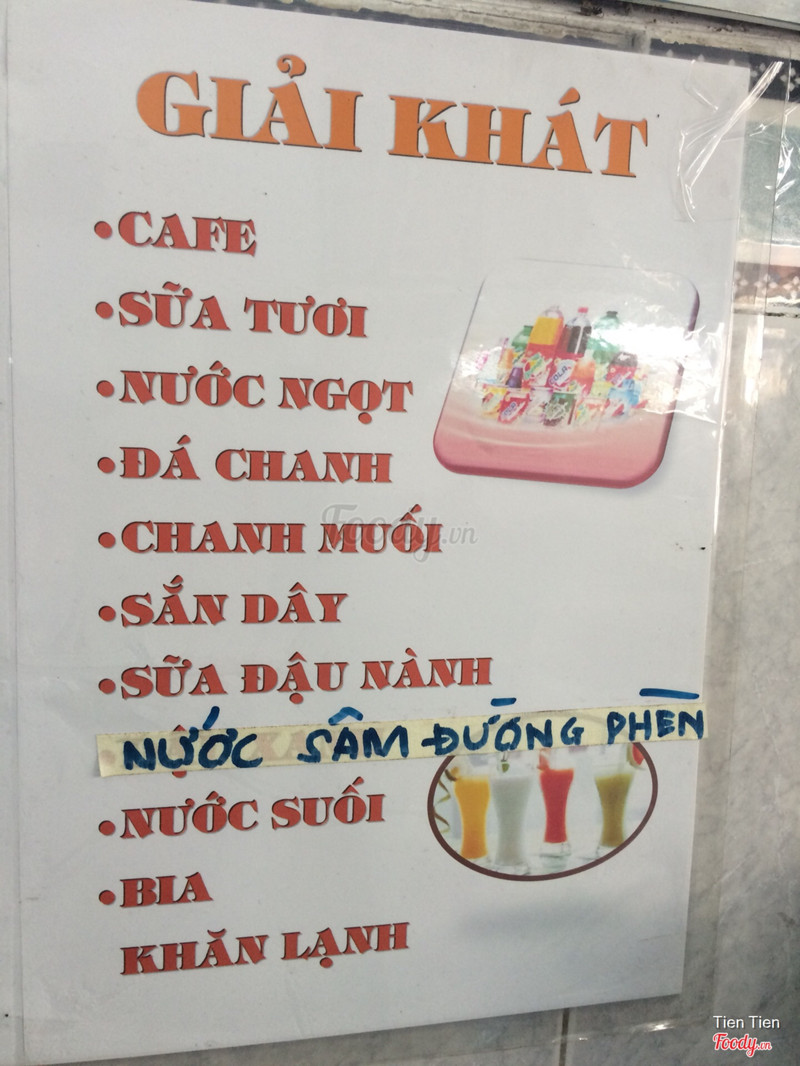 GIẢI KHÁT
•CAFE
•SỮA TƯƠI
•NƯỚC NGỌT
•ĐÁ CHANH
•CHANH MUỐI
Foody.vn
•SẮN DÂY
•SỮA ĐẬU NÀNH
NƯỚC SÂM ĐƯỜNG PHÈN
•NƯỚC SUỐI
•BIA
KHĂN LẠNH
Tien Tien
Foody.vn